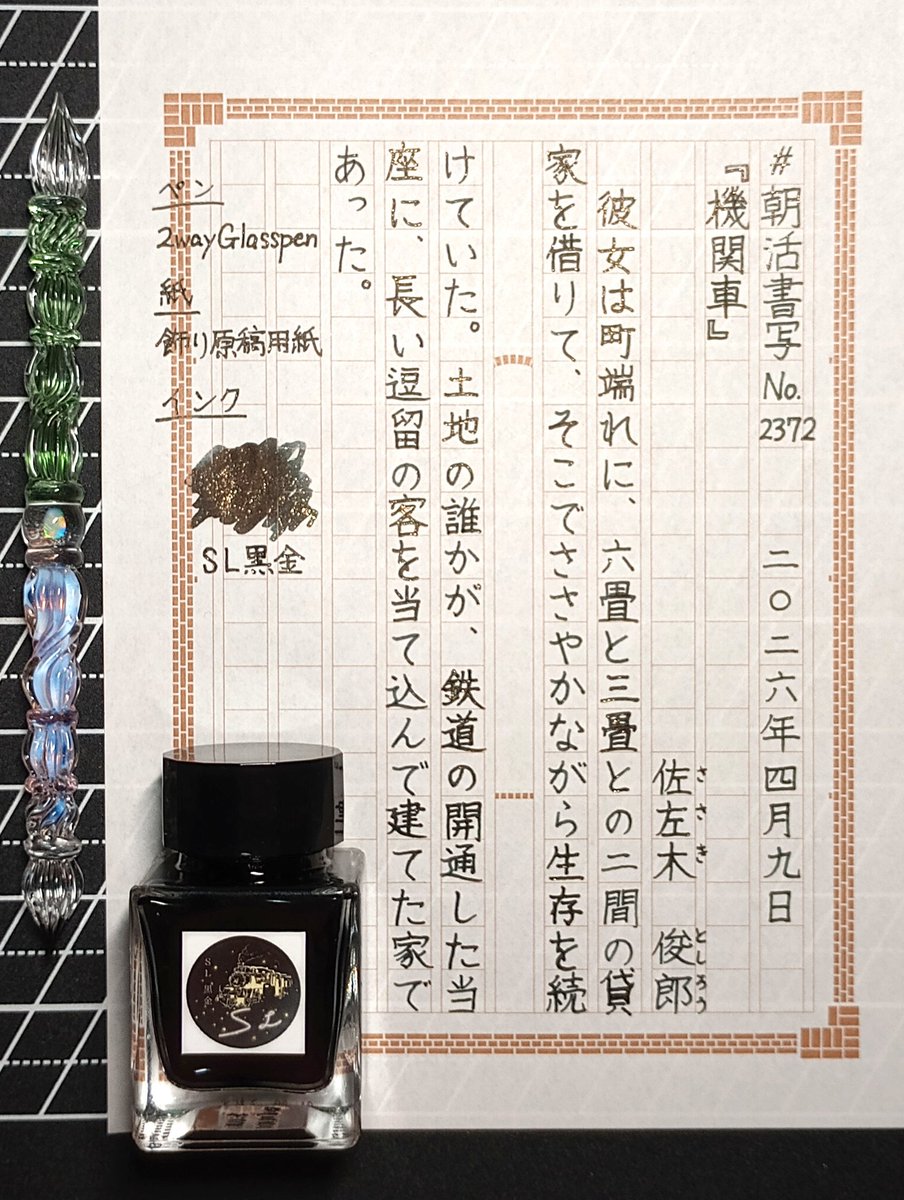 #朝活書写No.2372　二〇二六年四月九日
『機関車』
佐左木　俊郎
ささき　としろう
彼女は町端れに、六畳と三畳との二間の貸
家を借りて、そこでささやかながら生存を続
けていた。土地の誰かが、鉄道の開通した当
座に、長い逗留の客を当て込んで建てた家で
あった。
ペン
2wayGlasspen
紙
飾り原稿用紙
インク
SL黒金
SL黒金
SL